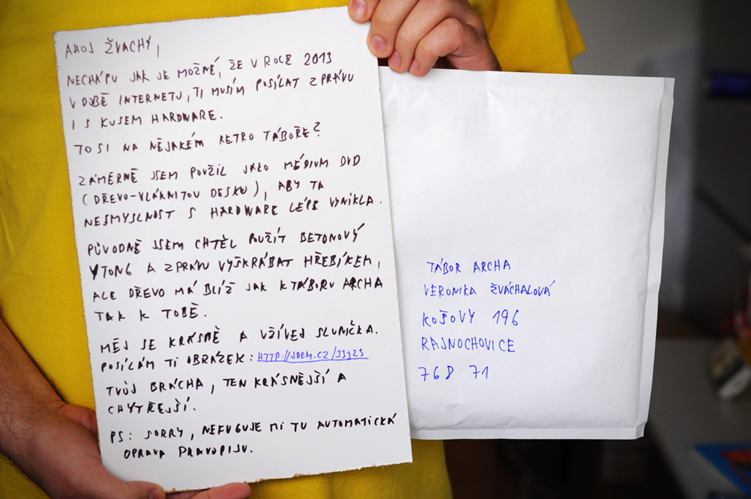 AHOJ ŽVACHY,
NECHÁPU JAK JE MOŽNÉ, ŽE V ROCE 2013
V DOBĚ INTERNETU, TI MUSÍM POSÍLAT ZPRÁVU
I S KUSEM HARDWARE.
TO SI NA NĚJAKÉM RETRO TÁBOŘE?
ZÁMĚRNĚ JSEM POUŽIL JAKO MÉDIUM DVD
(DŘEVO-VLÁKNITOU DESKU), ABY TA
NESMYSLNOST S HARDWARE LÉPE VYNIKLA.
PŮVODNĚ JSEM CHTĚL POUŽÍT BETONOVÝ
YTONG A ZPRÁVU VYŠKRÁBAT HŘEBÍKEM,
ALE DŘEVO MÁ BLÍŽ JAK K TÁBORU ARCHA
TAK K TOBĚ.
MĚJ SE KRÁSNĚ A UŽÍVEJ SLUNÍČKA.
POSÍLÁM TI OBRÁZEK: HTTP://JDEM.CZ/33923
TVŮJ BRÁCHA, TEN KRÁSNĚJŠÍ A
CHYTŘEJŠÍ.
PS: SORRY, NEFUGUJE MI TU AUTOMATICKÁ
OPRAVA PRAVOPISU.
TÁBOR ARCHA
VERONIKA ŽVÁCHALOVÁ
KOŠOVY 196
RAJNOCHOVICE
768 71